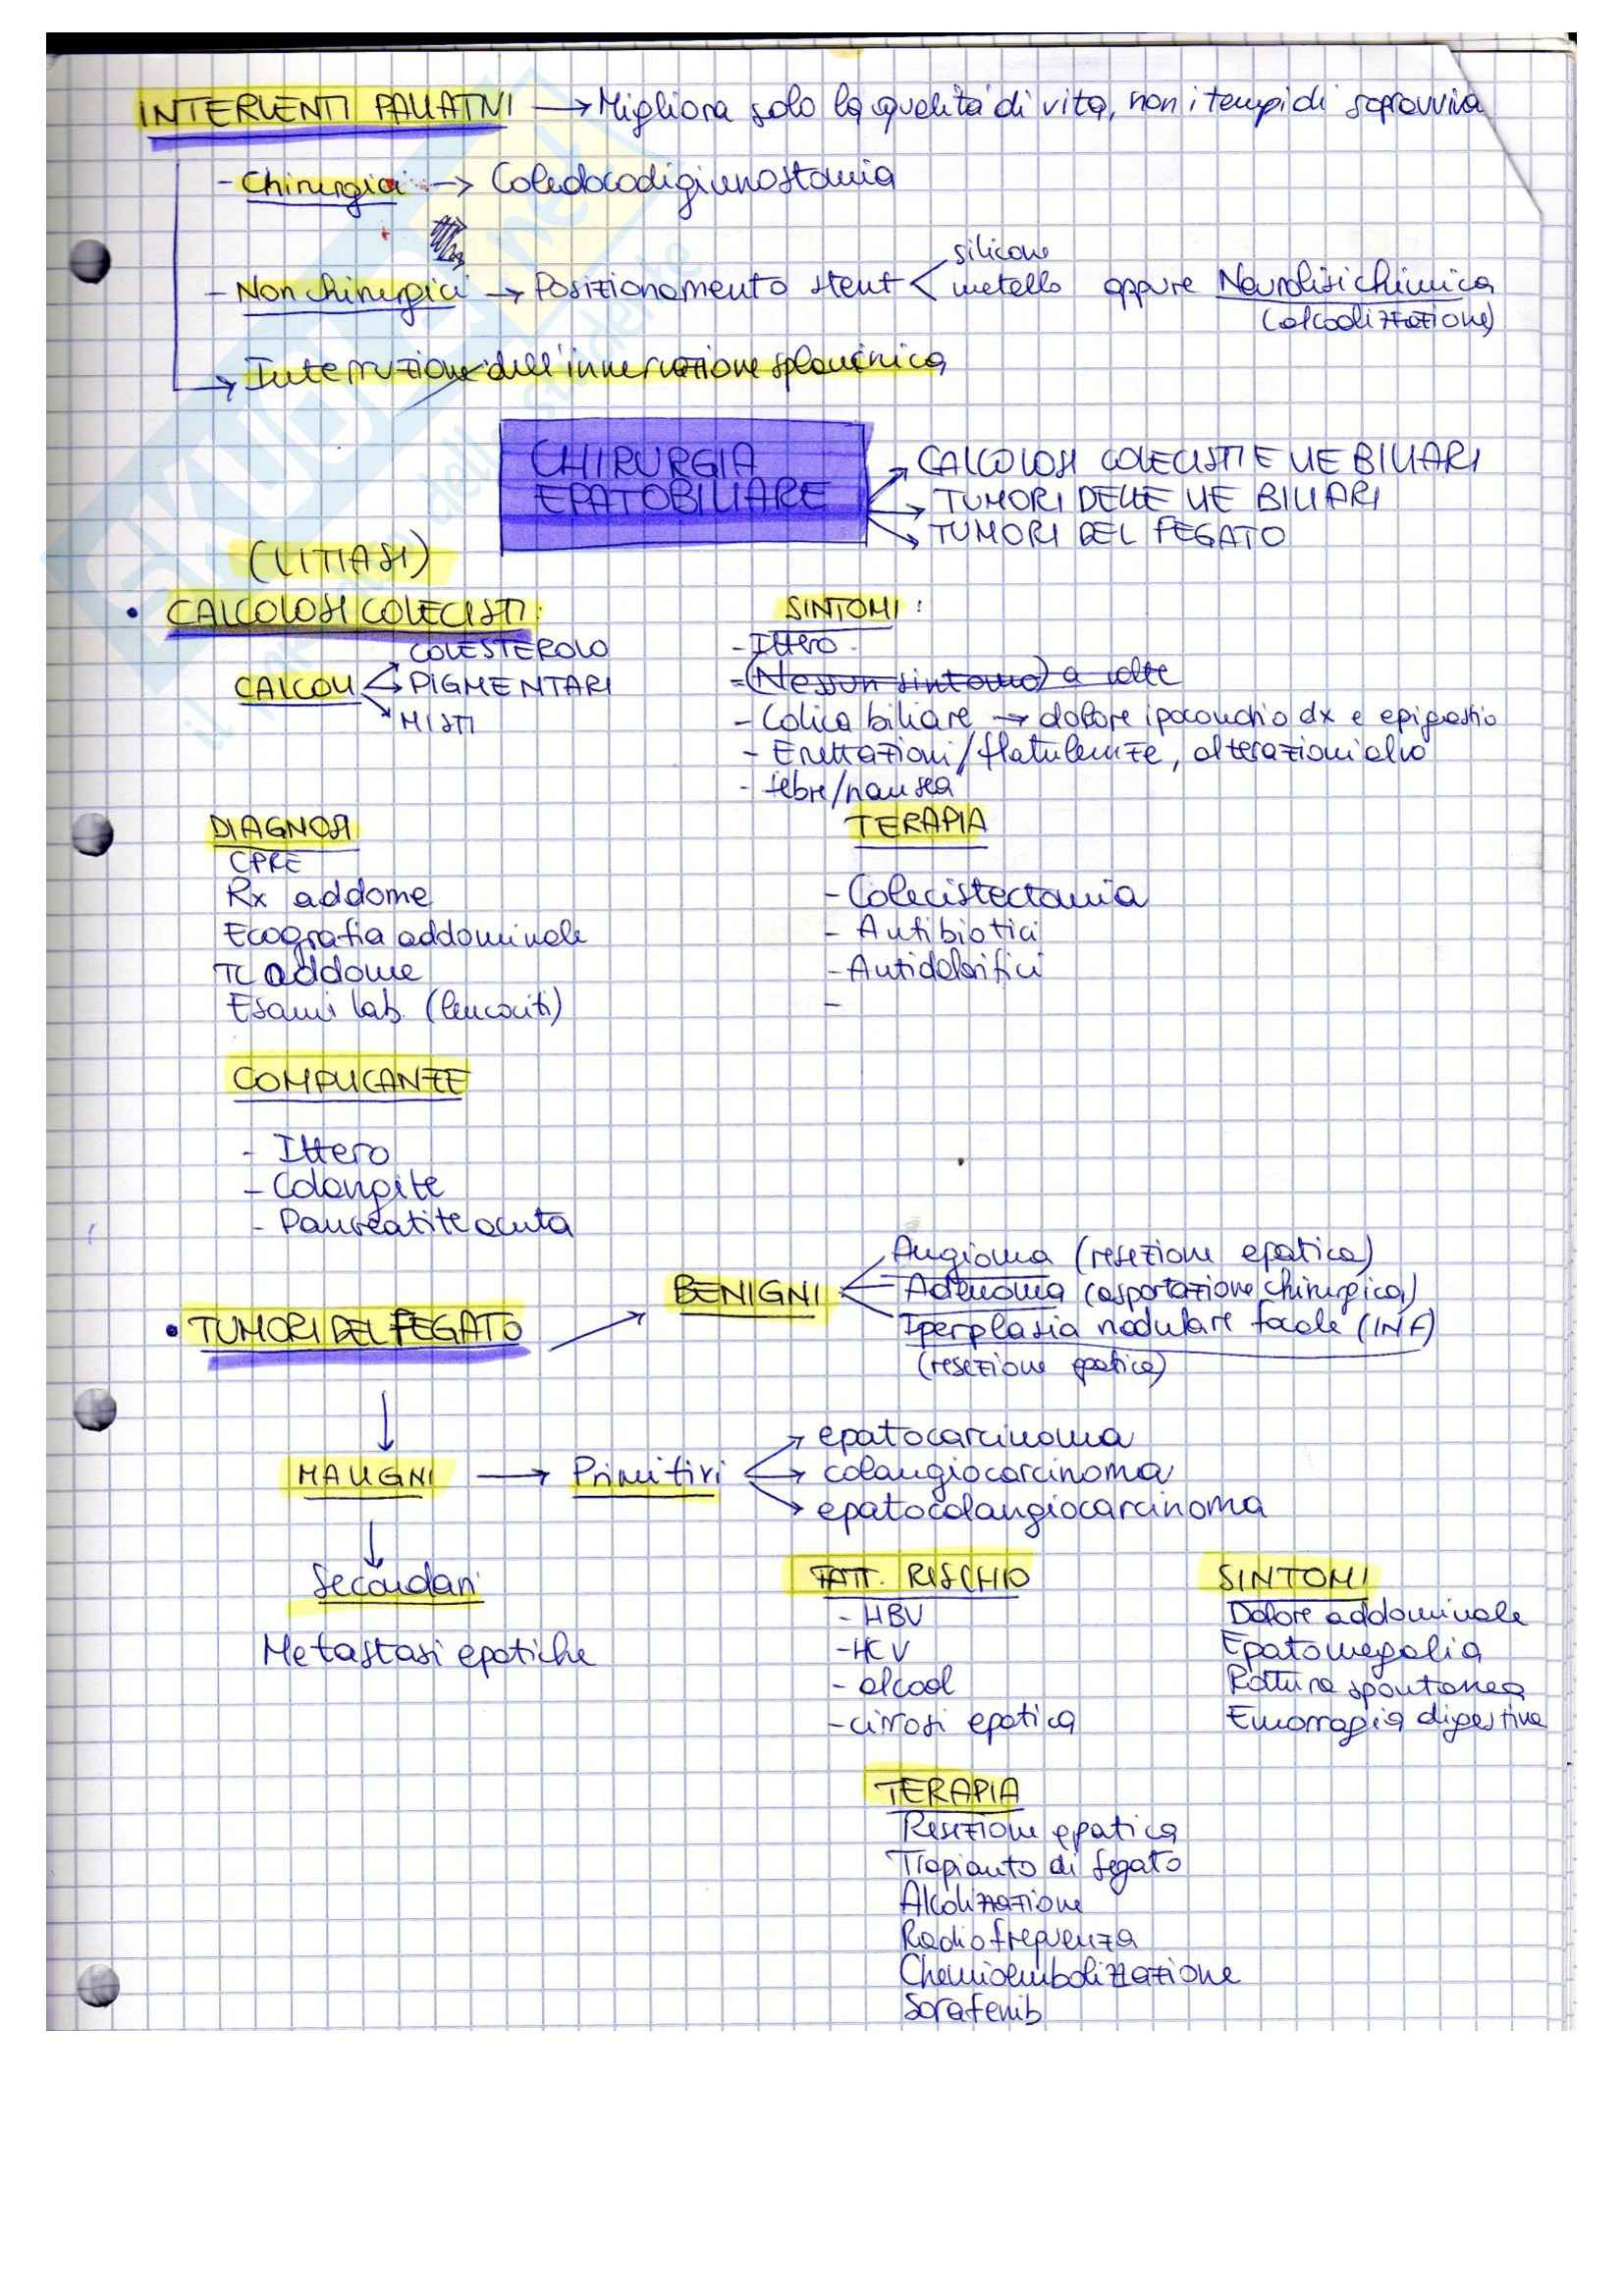 INTERVENTI PALLIATIVI → Migliora solo la qualità di vita, non i tempi di sopravviva
- Chirurgici → Coledocodigiunostomia
silicone
- Non chirurgici → Posizionamento stent < metallo oppure Neurolisi chimica
(alcolizzazione)
→ Interruzione dell'innervazione splancnica
CHIRURGIA
EPATOBILIARE
→ CALCOLOSI COLECISTI E VIE BILIARI
→ TUMORI DELLE VIE BILIARI
→ TUMORI DEL FEGATO
(LITIASI)
• CALCOLOSI COLECISTI:
CALCOLI
→ COLESTEROLO
→ PIGMENTARI
→ MISTI
SINTOMI:
- Ittero
- (Nessun sintomo) a volte
- Colica biliare → dolore ipocondrio dx e epigastrio
- Eruttazioni/flatulenze, alterazioni alvo
- febre/nausea
DIAGNOSI
CPRE
Rx addome
Ecografia addominale
TC addome
Esami lab. (leucociti)
TERAPIA
- Colecistectomia
- Antibiotici
- Antidolorifici
-
COMPLICANZE
- Ittero
- Colangite
- Pancreatite acuta
• TUMORI DEL FEGATO
BENIGNI
Angioma (resezione epatica)
Adenoma (asportazione chirurgica)
Iperplasia nodulare focale (INF)
(resezione epatica)
MALIGNI → Primitivi
→ epatocarcinoma
→ colangiocarcinoma
→ epatocolangiocarcinoma
Secondari
Metastasi epatiche
FATT. RISCHIO
- HBV
- HCV
- alcool
- cirrosi epatica
SINTOMI
Dolore addominale
Epatomegalia
Rottura spontanea
Emorragia digestiva
TERAPIA
Resezione epatica
Trapianto di fegato
Alcolizzazione
Radiofrequenza
Chemioembolizzazione
Sorafenib